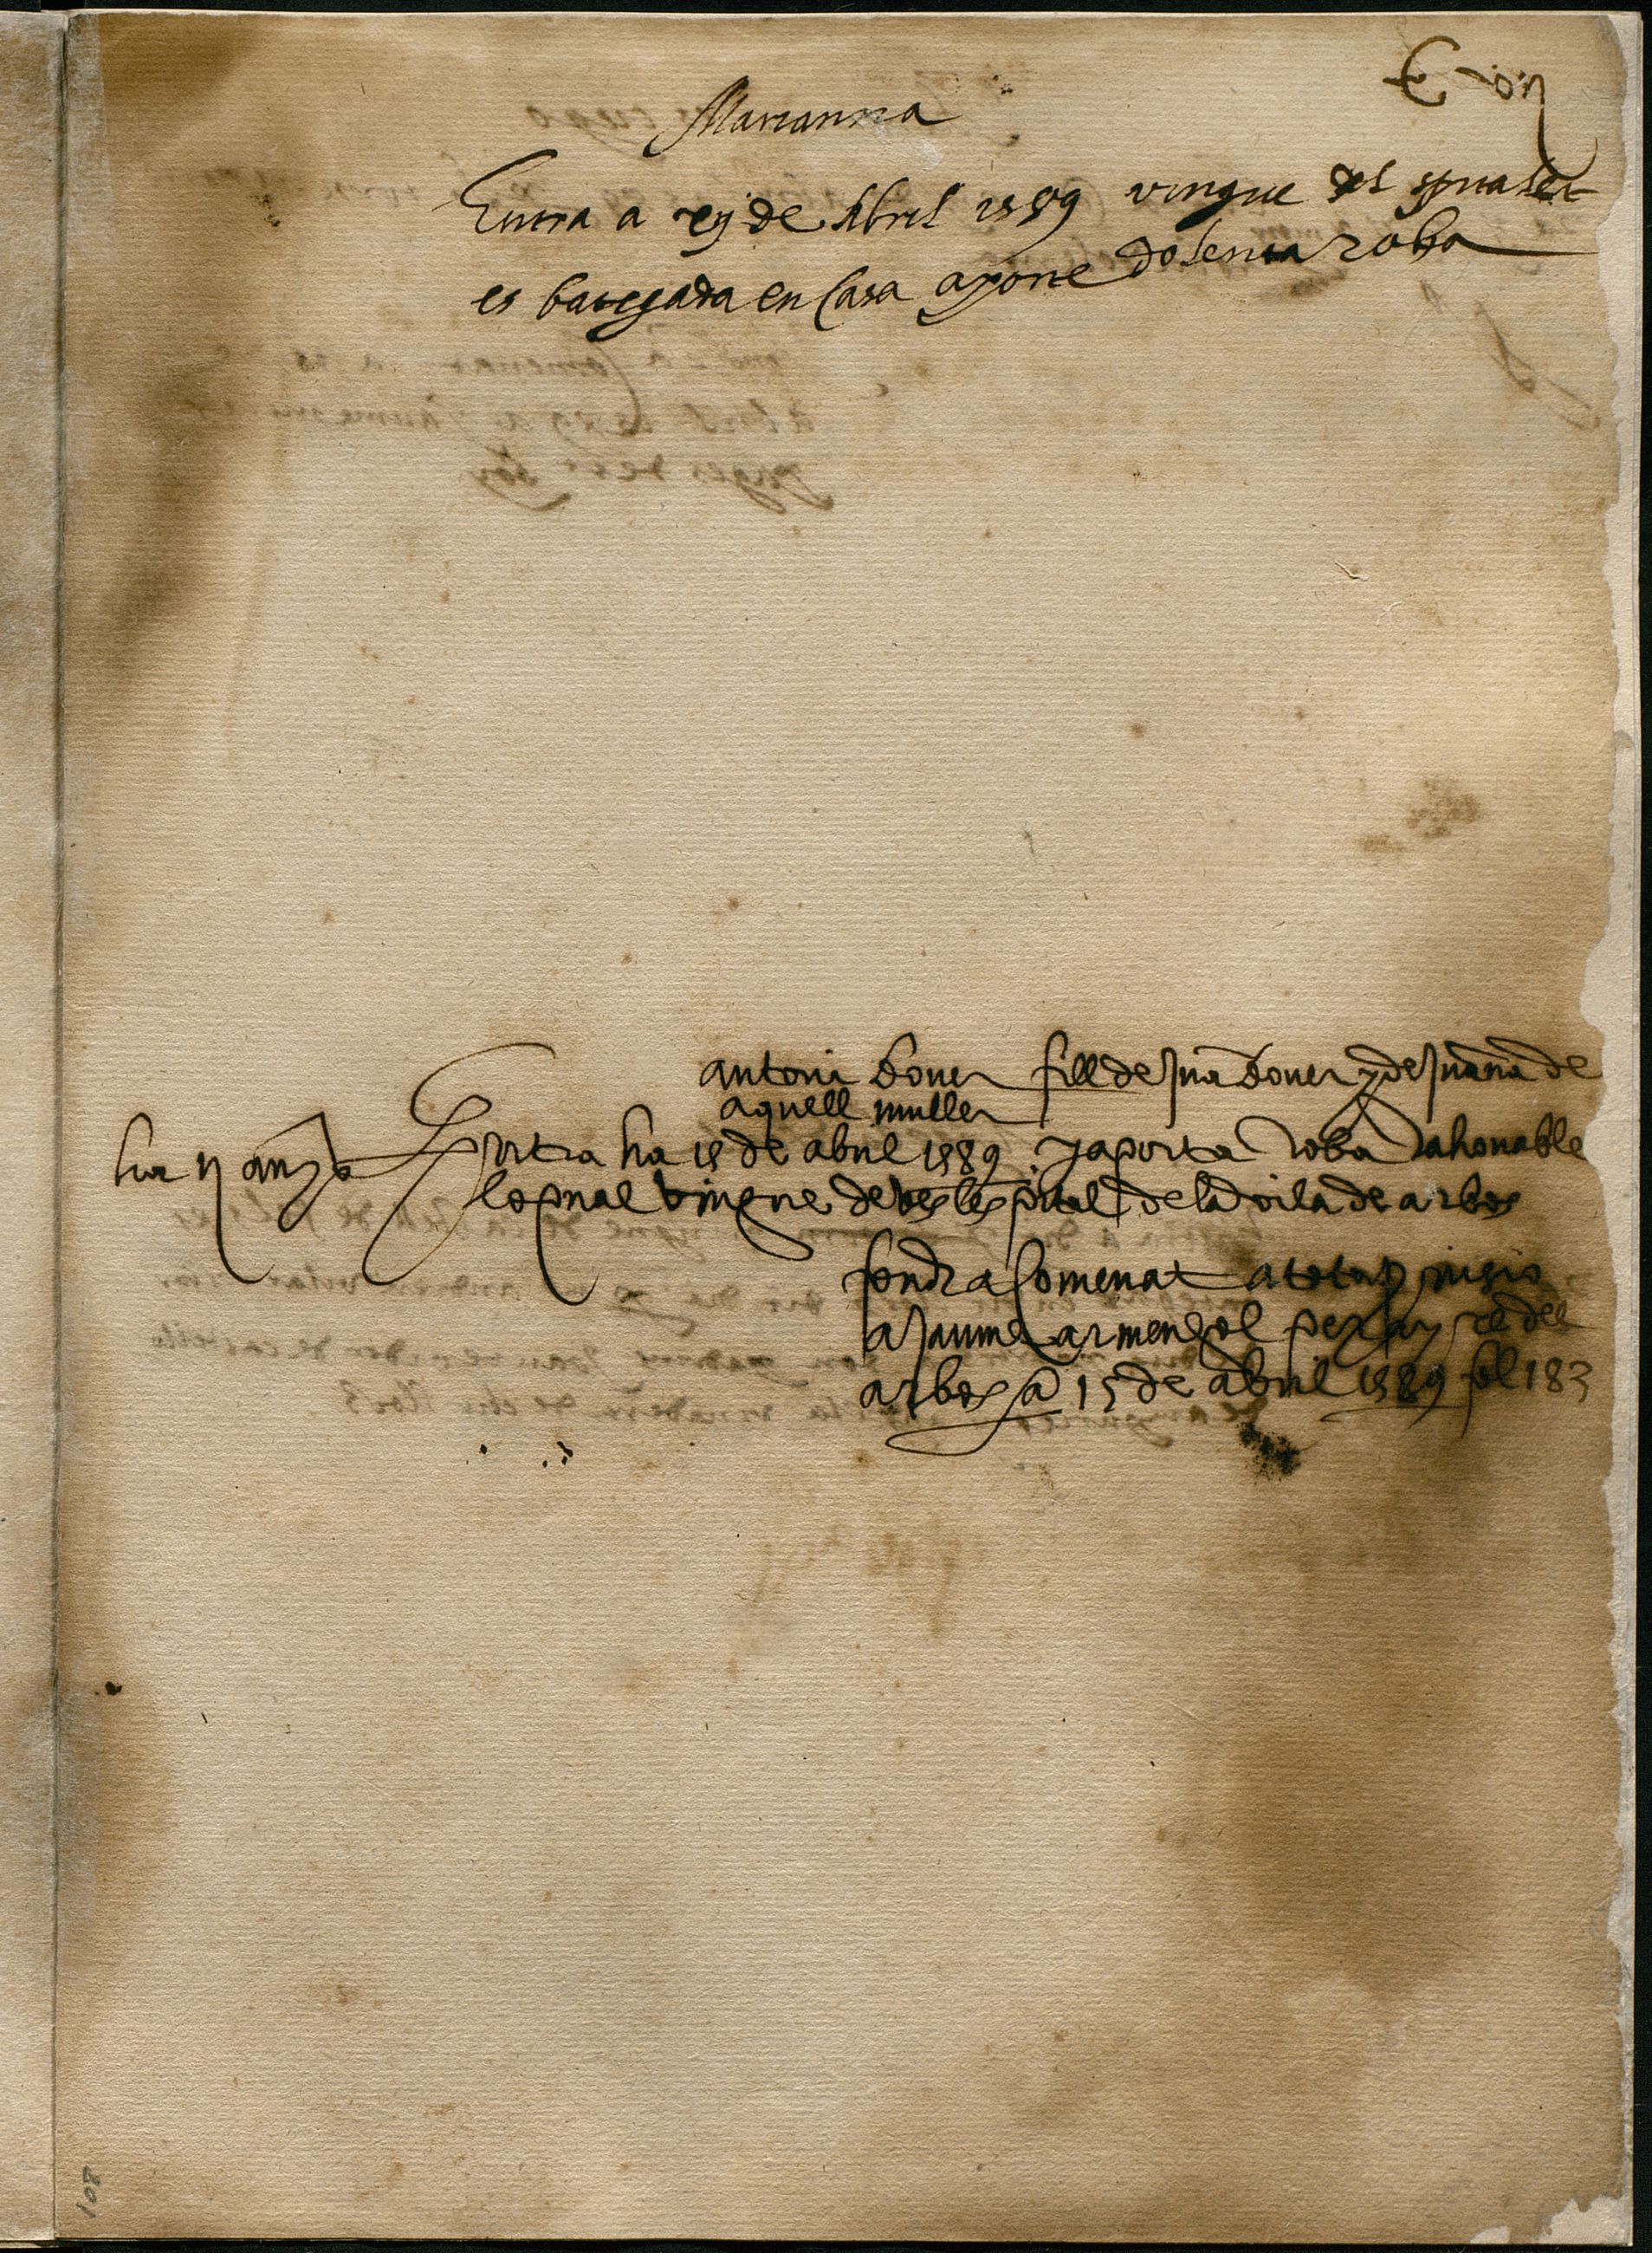 Marianna
Entra a xij de Abril 1589 vingue del
es bategada en Casa aporte dolenta roba
antoni Bover fill de Jua Bover y de Juana de
aquell muller
ha n anys Entra ha 15 de abril 1589 y aporta roba rahonable
lo qual vingue de les pital de la vila de arbos
fondr a comenat a
a Jaume armengol perayre del
arbos a 15 de abril 1589 fol 183
108